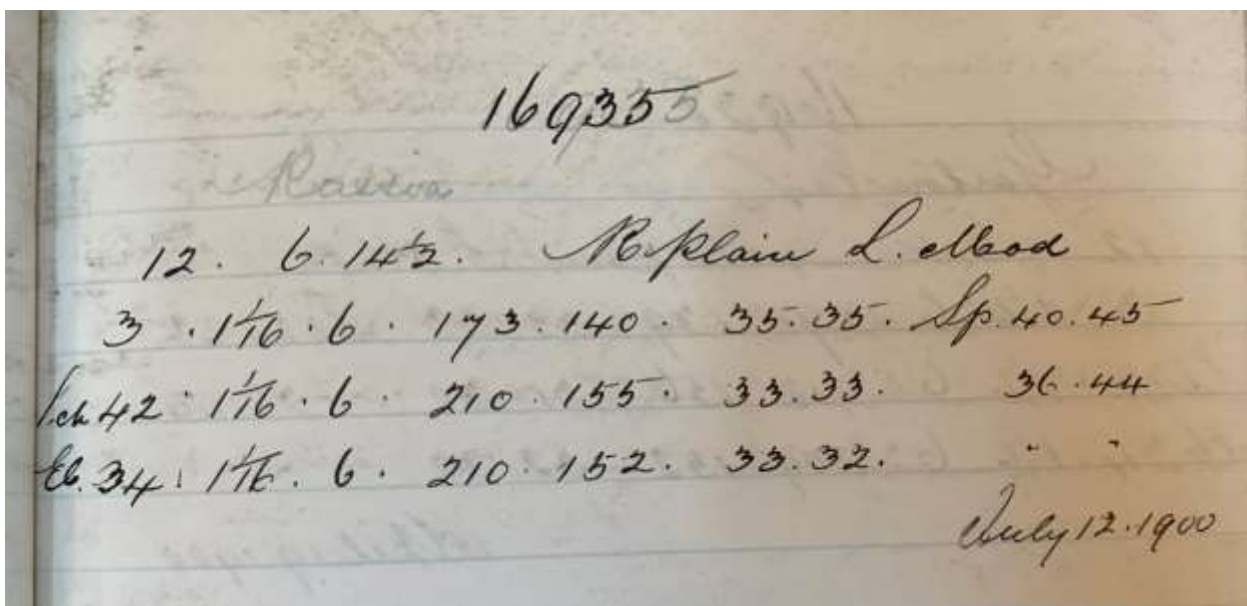 169355
12. 6. 14½. R Plain L. Mod
3 . 1 1/16 . 6 . 173 . 140 . 35. 35. Sp. 40. 45
42 . 1 1/16 . 6 . 210 . 155 . 33. 33. 36. 44
Eb. 34 . 1 1/16 . 6 . 210 . 152 . 33. 32. " "
July 12. 1900